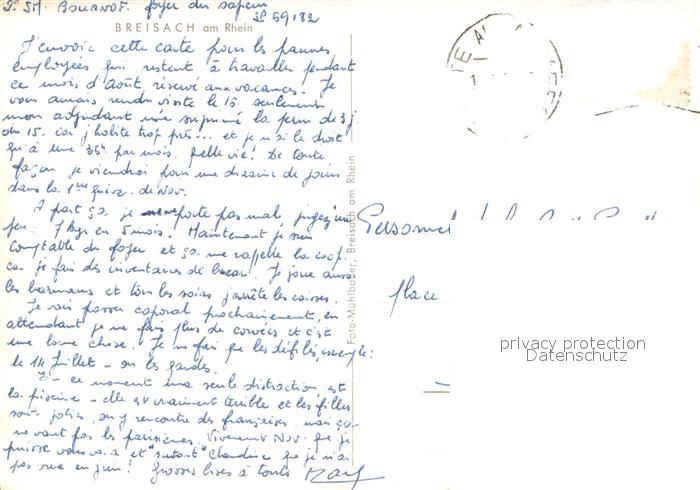 2e Sst. BOURNOT. foyer du sapeur
SP 69182
BREISACH am Rhein
J'envoie cette carte pour les pauvres
employées qui restent à travailler pendant
ce mois d'août, réservé aux vacances. Je
vous aurais rendu visite le 15 seulement
mon adjudant m'a supprimé la perm de 3 j.
du 15. car j'habite trop près... et je n'ai le droit
qu'à une 36h par mois. Belle vie! De toute
façon je viendrai pour une dizaine de jours
dans la 1ère quinz. de Nov.
A part ça je me porte pas mal jugez un
peu: 7 kgs en 5 mois. Maintenant je suis
comptable du foyer et ça me rappelle la coop.
car je fais des inventaires de bazar. Je joue aussi
les barmans et tous les soirs j'arrête les caisses.
Je vais passer caporal prochainement, en
attendant je ne fais plus de corvées et c'est
une bonne chose. Je ne fais que les défilés, exemple:
le 14 Juillet - ou les gardes.
En ce moment ma seule distraction est
la piscine - elle est vraiment terrible et les filles
sont jolies, on y rencontre des françaises, mais ça
ne vaut pas les parisiennes. Vivement Nov. que je
puisse vous voir et "surtout" Claudine que je n'ai
pas vue en juin! Grosses bises à toutes
Foto-Mühlbauer, Breisach am Rhein
Personnel
place
privacy protection
Datenschutz